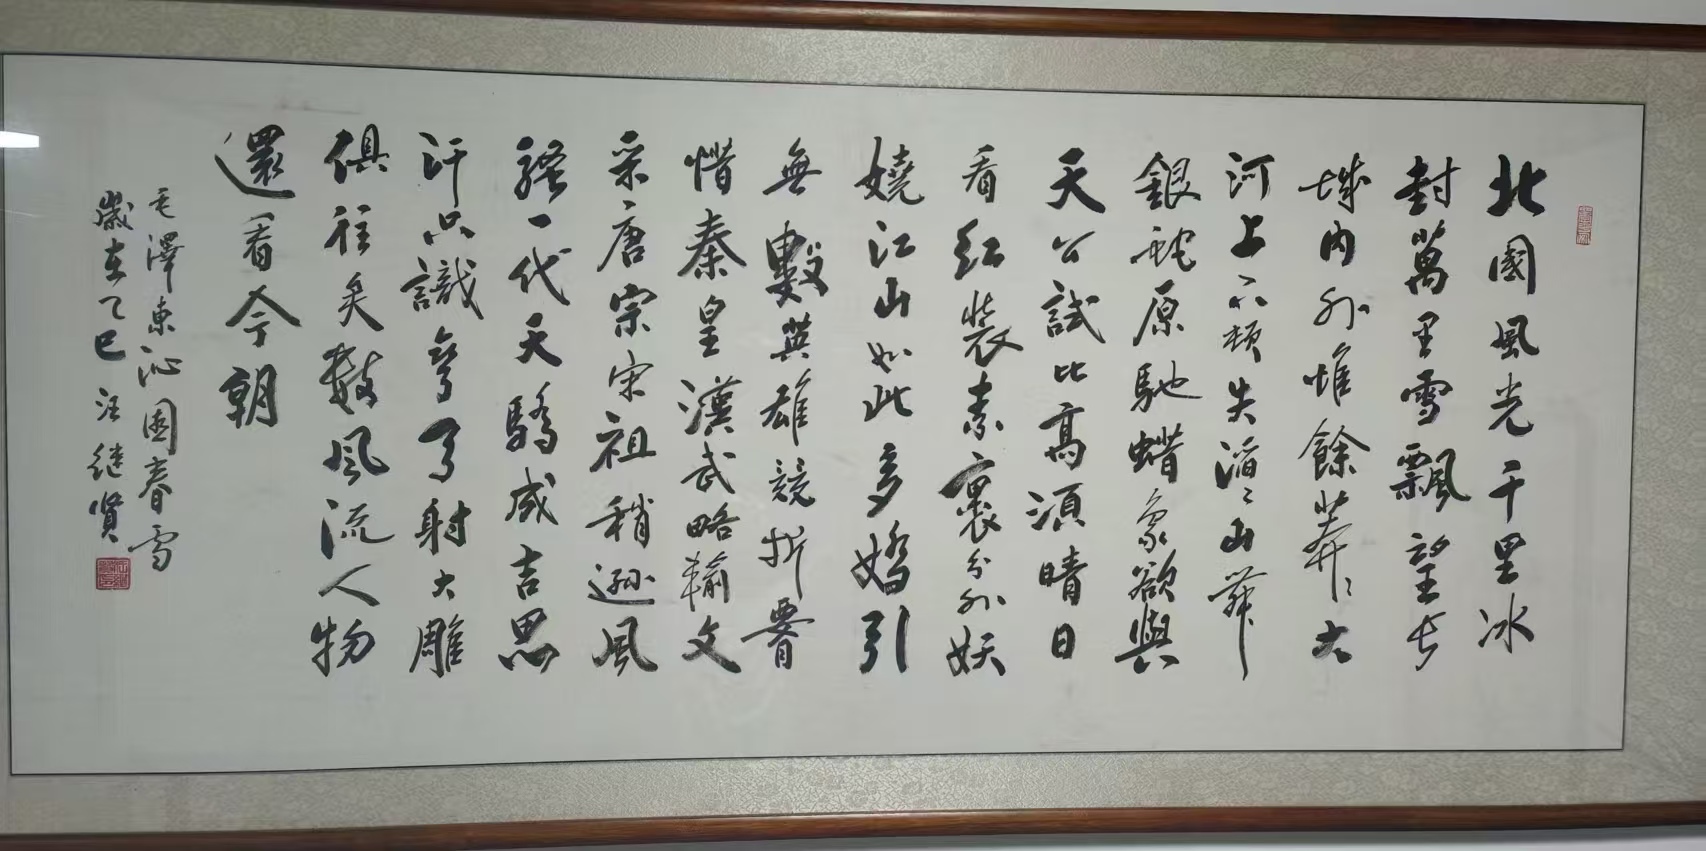 北國風光千里冰
封萬里雪飄望長
城內外惟餘莽〻大
河上下頓失滔〻山舞
銀蛇原馳蠟象欲與
天公試比高須晴日
看紅裝素裹分外妖
嬈江山如此多嬌引
無數英雄競折腰
惜秦皇漢武略輸文
采唐宗宋祖稍遜風
騷一代天驕成吉思
汗只識彎弓射大雕
俱往矣數風流人物
還看今朝
毛澤東沁園春雪
歲在乙巳汪继贤